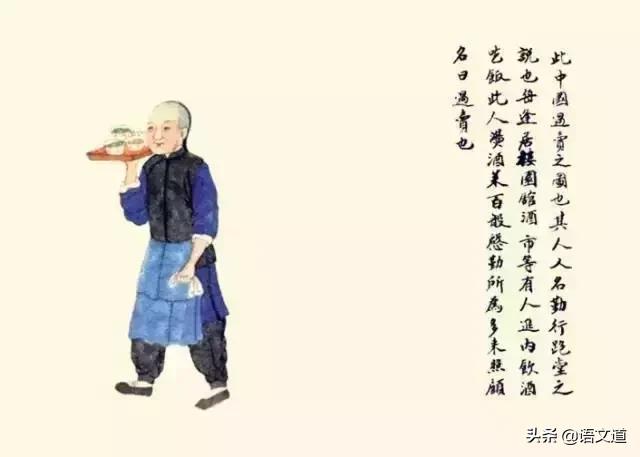 此中國過賣之圖也其人人名勤行跑堂之
説也每逢居樓園館酒市等有人進內飲酒
吃飯此人酒菜百般慇勤所為多來照顧
名曰過賣也
头条 @语文道